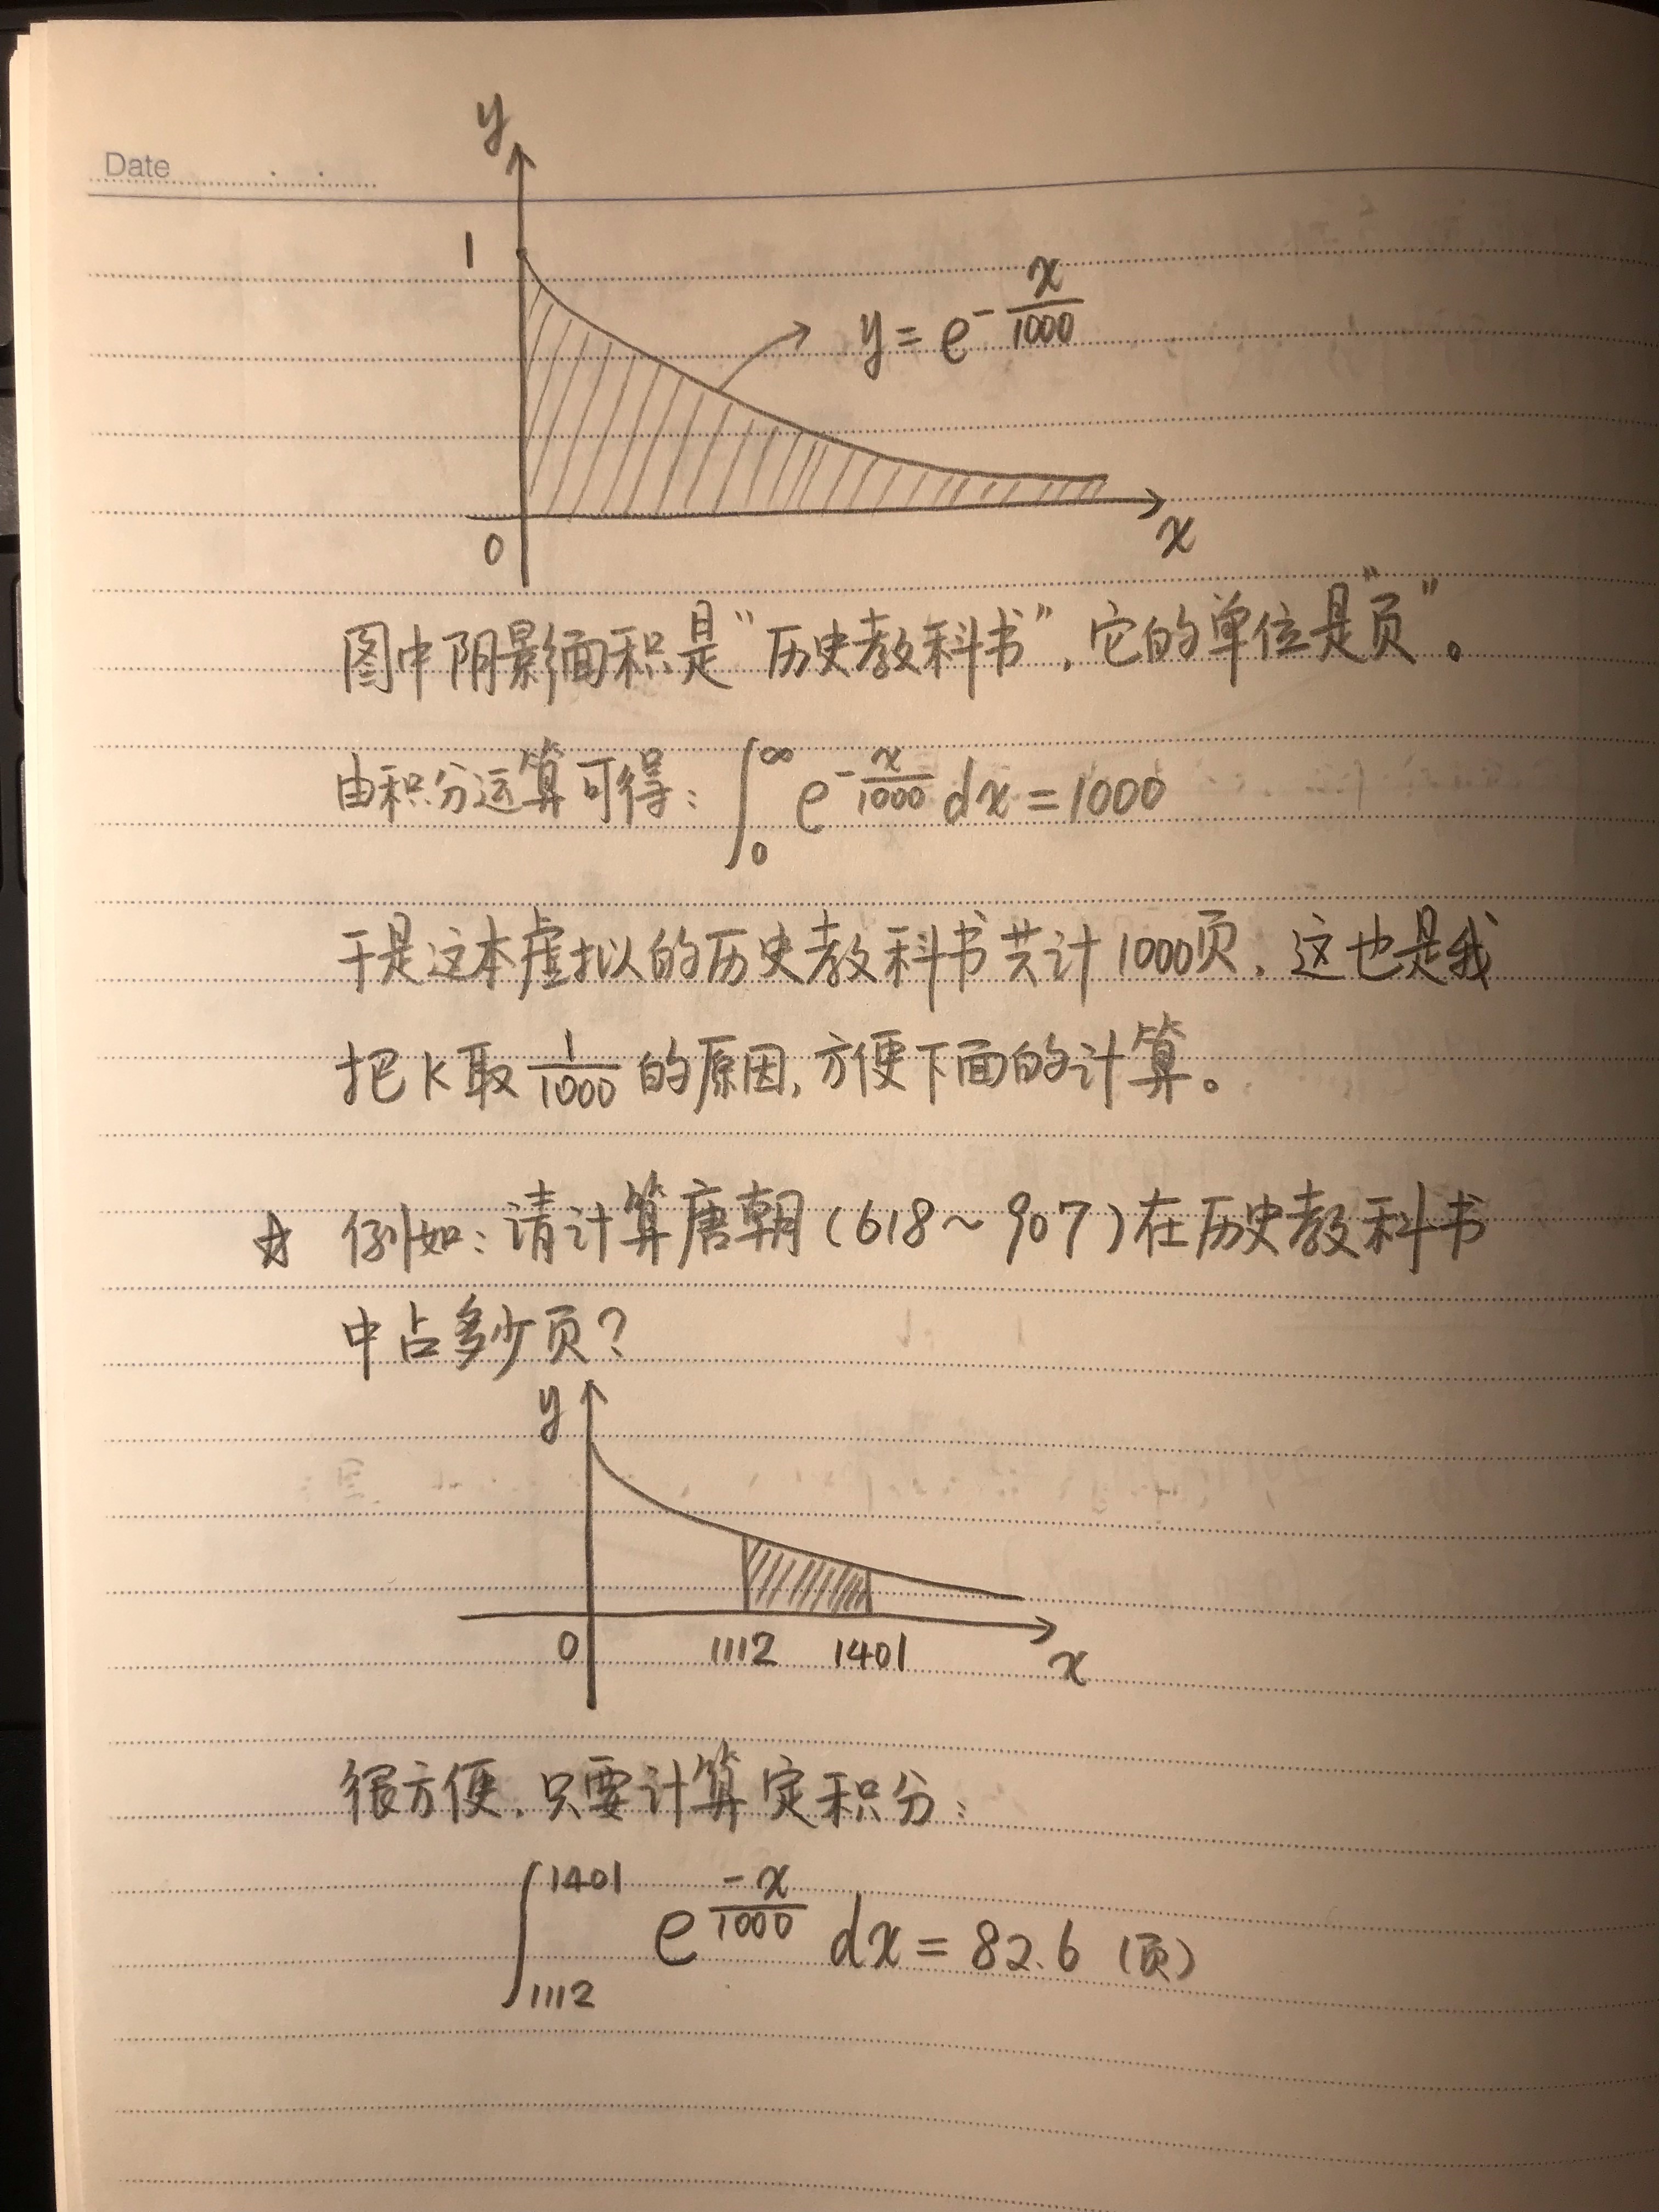 Date
y
1
y = e^{-\frac{x}{1000}}
0
x
图中阴影面积是“历史教科书”,它的单位是“页”。
由积分运算可得: \int_0^∞ e^{-\frac{x}{1000}} dx = 1000
于是这本虚拟的历史教科书共计1000页,这也是我
把 k 取 \frac{1}{1000} 的原因,方便下面的计算。
☆ 例如:请计算唐朝(618~907)在历史教科书
中占多少页?
y
0 1112 1401 x
很方便,只要计算定积分:
\int_{1112}^{1401} e^{\frac{-x}{1000}} dx = 82.6 (页)